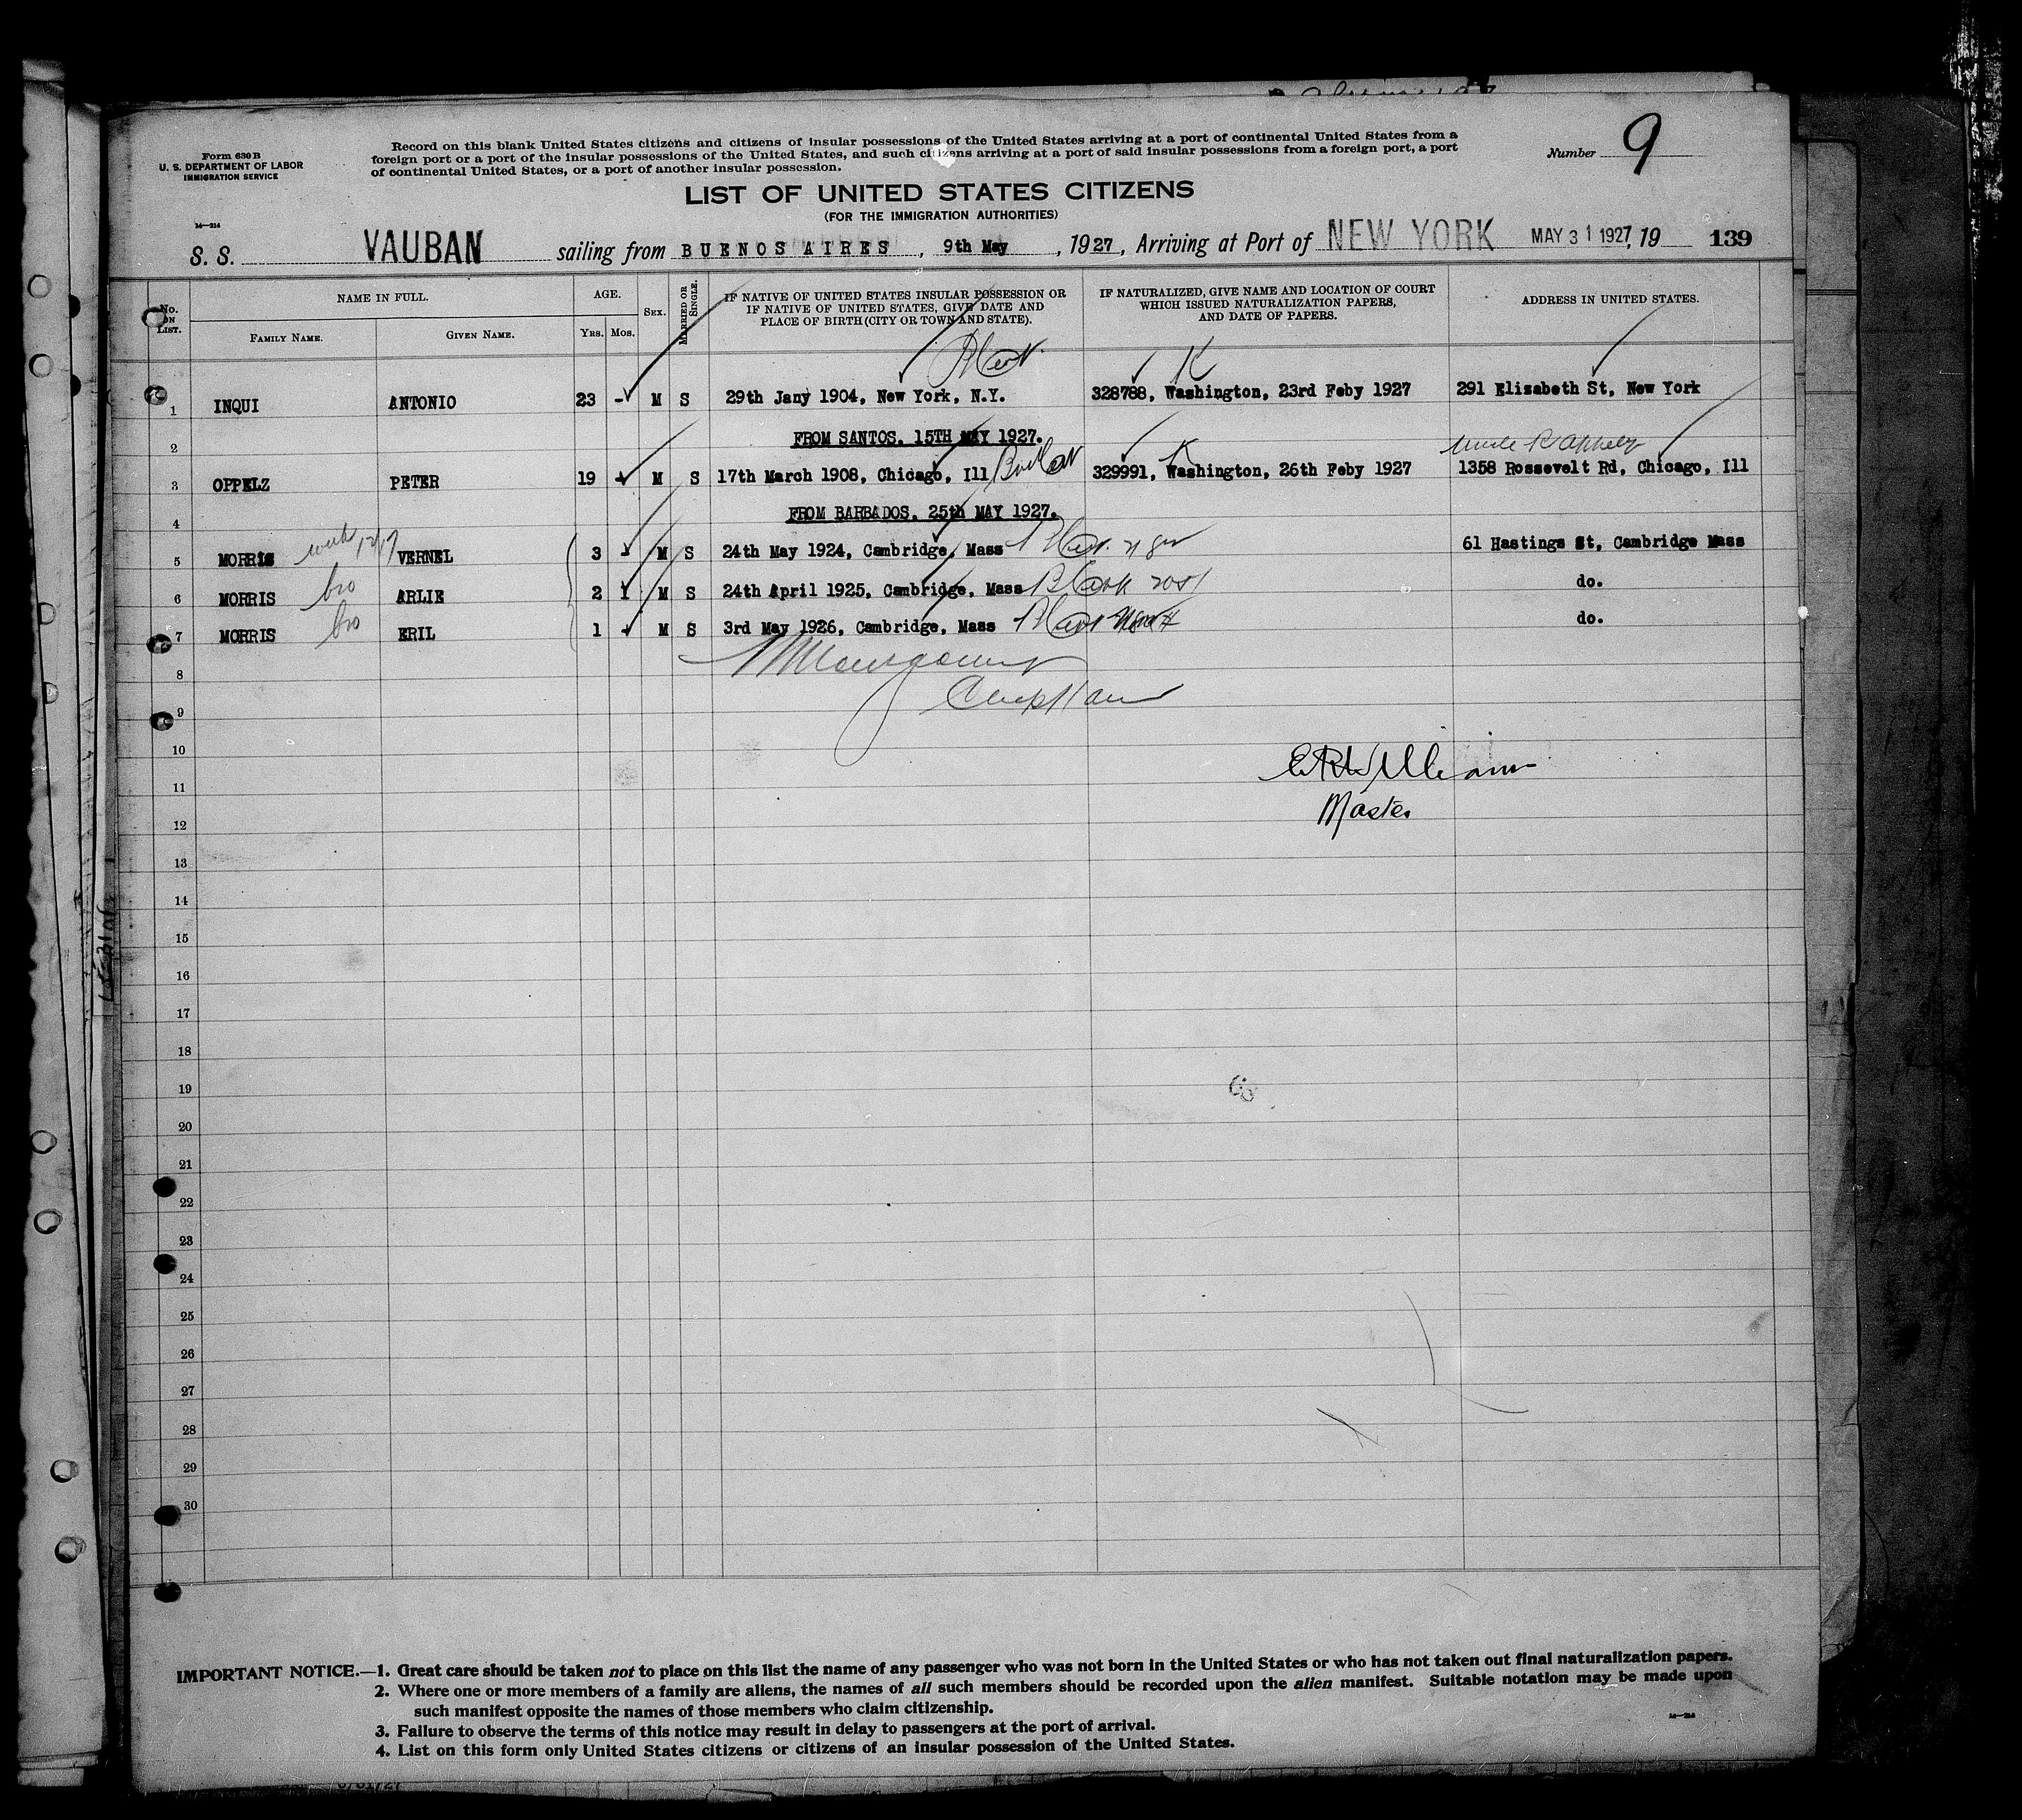 Form 630 B
U. S. DEPARTMENT OF LABOR
IMMIGRATION SERVICE
Record on this blank United States citizens and citizens of insular possessions of the United States arriving at a port of continental United States from a
foreign port or a port of the insular possessions of the United States, and such citizens arriving at a port of said insular possessions from a foreign port, a port
of continental United States, or a port of another insular possession.
Number 9
LIST OF UNITED STATES CITIZENS
(FOR THE IMMIGRATION AUTHORITIES)
14—214
S. S. VAUBAN sailing from BUENOS AIRES, 9th May, 1927, Arriving at Port of NEW YORK MAY 31 1927, 19 139
No. ON LIST. NAME IN FULL. FAMILY NAME. GIVEN NAME. AGE. YRS. MOS. SEX. MARRIED OR SINGLE. IF NATIVE OF UNITED STATES INSULAR POSSESSION OR IF NATIVE OF UNITED STATES, GIVE DATE AND PLACE OF BIRTH (CITY OR TOWN AND STATE). IF NATURALIZED, GIVE NAME AND LOCATION OF COURT WHICH ISSUED NATURALIZATION PAPERS, AND DATE OF PAPERS. ADDRESS IN UNITED STATES.
1 INQUI ANTONIO 23 - M S 29th Jany 1904, New York, N.Y. 328788, Washington, 23rd Feby 1927 291 Elizabeth St, New York
K
2 FROM SANTOS. 15TH MAY 1927.
uncle
3 OPPELZ PETER 19 - M S 17th March 1908, Chicago, Ill 329991, Washington, 26th Feby 1927 1358 Rossevelt Rd, Chicago, Ill
K
4 FROM BARBADOS. 25th MAY 1927.
5 MORRIS with 12/17 VERNEL 3 - M S 24th May 1924, Cambridge, Mass 61 Hastings St, Cambridge Mass
6 MORRIS bro ARLIE 2 1 M S 24th April 1925, Cambridge, Mass do.
7 MORRIS bro ERIL 1 - M S 3rd May 1926, Cambridge, Mass do.
8
9
10
E R Williams
11
Master
12
13
14
15
16
17
18
19
20
21
22
23
24
25
26
27
28
29
30
IMPORTANT NOTICE.—1. Great care should be taken not to place on this list the name of any passenger who was not born in the United States or who has not taken out final naturalization papers.
2. Where one or more members of a family are aliens, the names of all such members should be recorded upon the alien manifest. Suitable notation may be made upon
such manifest opposite the names of those members who claim citizenship.
3. Failure to observe the terms of this notice may result in delay to passengers at the port of arrival.
4. List on this form only United States citizens or citizens of an insular possession of the United States.
14—214